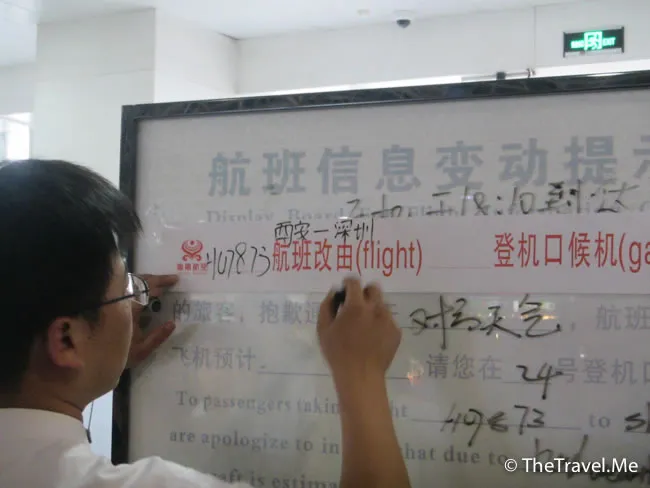 EXIT
航班信息变动提示
Display Board
18:10到达
西安—深圳
HU7873 航班改由(flight) 登机口候机(ga
的旅客，抱歉通 对方天气，航班
飞机预计 请您在 24 号登机口
To passengers taking flight HU7873 to
are apologize to in that due to bad
craft is estima
© TheTravel.Me